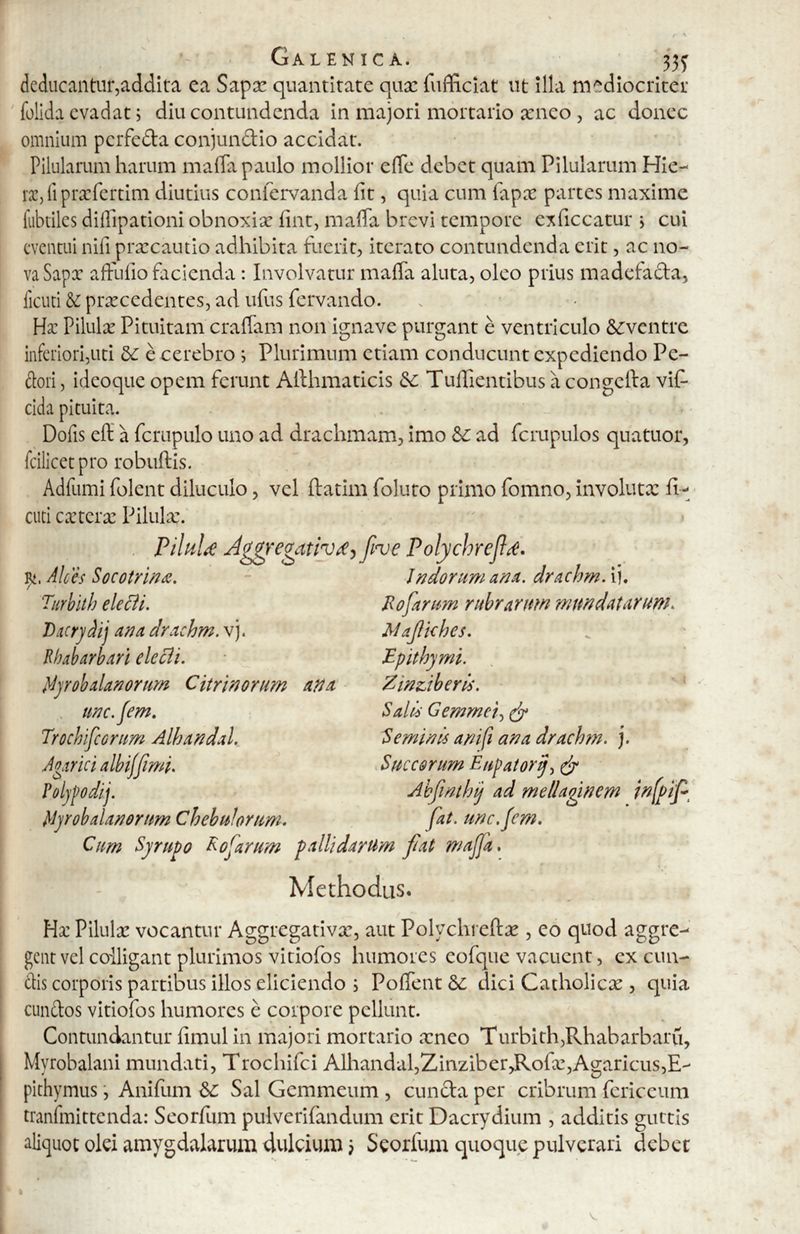 GALENICA. 335
deducantur,addita ea Sapæ quantitate quæ ſufficiat ut illa mediocriter
ſolida evadat; diu contundenda in majori mortario æneo, ac donec
omnium perfecta conjunctio accidat.
Pilularum harum maſſa paulo mollior eſſe debet quam Pilularum Hie-
ræ, ſi præſertim diutius conſervanda ſit, quia cum ſapæ partes maxime
ſubtiles diſſipationi obnoxiæ ſint, maſſa brevi tempore exſiccatur; cui
eventui niſi præcautio adhibita fuerit, iterato contundenda erit, ac no-
va Sapæ affuſio facienda: Involvatur maſſa aluta, oleo prius madefacta,
ſicuti & præcedentes, ad uſus ſervando.
Hæ Pilulæ Pituitam craſſam non ignave purgant è ventriculo & ventre
inferiori,uti & è cerebro; Plurimum etiam conducunt expediendo Pe-
ctori, ideoque opem ferunt Aſthmaticis & Tuſſientibus à congeſta viſ-
cida pituita.
Doſis eſt à ſcrupulo uno ad drachmam, imo & ad ſcrupulos quatuor,
ſcilicet pro robuſtis.
Adſumi ſolent diluculo, vel ſtatim ſoluto primo ſomno, involutæ ſi-
cuti cæteræ Pilulæ.
Pilulæ Aggregativæ, ſive Polychreſtæ.
℞. Aloës Socotrinæ.
Turbith electi.
Dacrydij ana drachm. vj.
Rhabarbari electi.
Myrobalanorum Citrinorum ana
unc. ſem.
Trochiſcorum Alhandal.
Agarici albiſſimi.
Polypodij.
Myrobalanorum Chebulorum.
Indorum ana. drachm. ij.
Roſarum rubrarum mundatarum.
Maſtiches.
Epithymi.
Zinziberis.
Salis Gemmei, &
Seminis aniſi ana drachm. j.
Succorum Eupatorij, &
Abſinthij ad mellaginem inſpiſ-
ſat. unc. ſem.
Cum Syrupo Roſarum pallidarum fiat maſſa.
Methodus.
Hæ Pilulæ vocantur Aggregativæ, aut Polychreſtæ, eò quod aggre-
gent vel colligant plurimos vitioſos humores eoſque vacuent, ex cun-
ctis corporis partibus illos eliciendo; Poſſent & dici Catholicæ, quia
cunctos vitioſos humores è corpore pellunt.
Contundantur ſimul in majori mortario æneo Turbith,Rhabarbarũ,
Myrobalani mundati, Trochiſci Alhandal,Zinziber,Roſæ,Agaricus,E-
pithymus, Aniſum & Sal Gemmeum, cuncta per cribrum ſericeum
tranſmittenda: Seorſum pulveriſandum erit Dacrydium, additis guttis
aliquot olei amygdalarum dulcium; Seorſum quoque pulverari debet